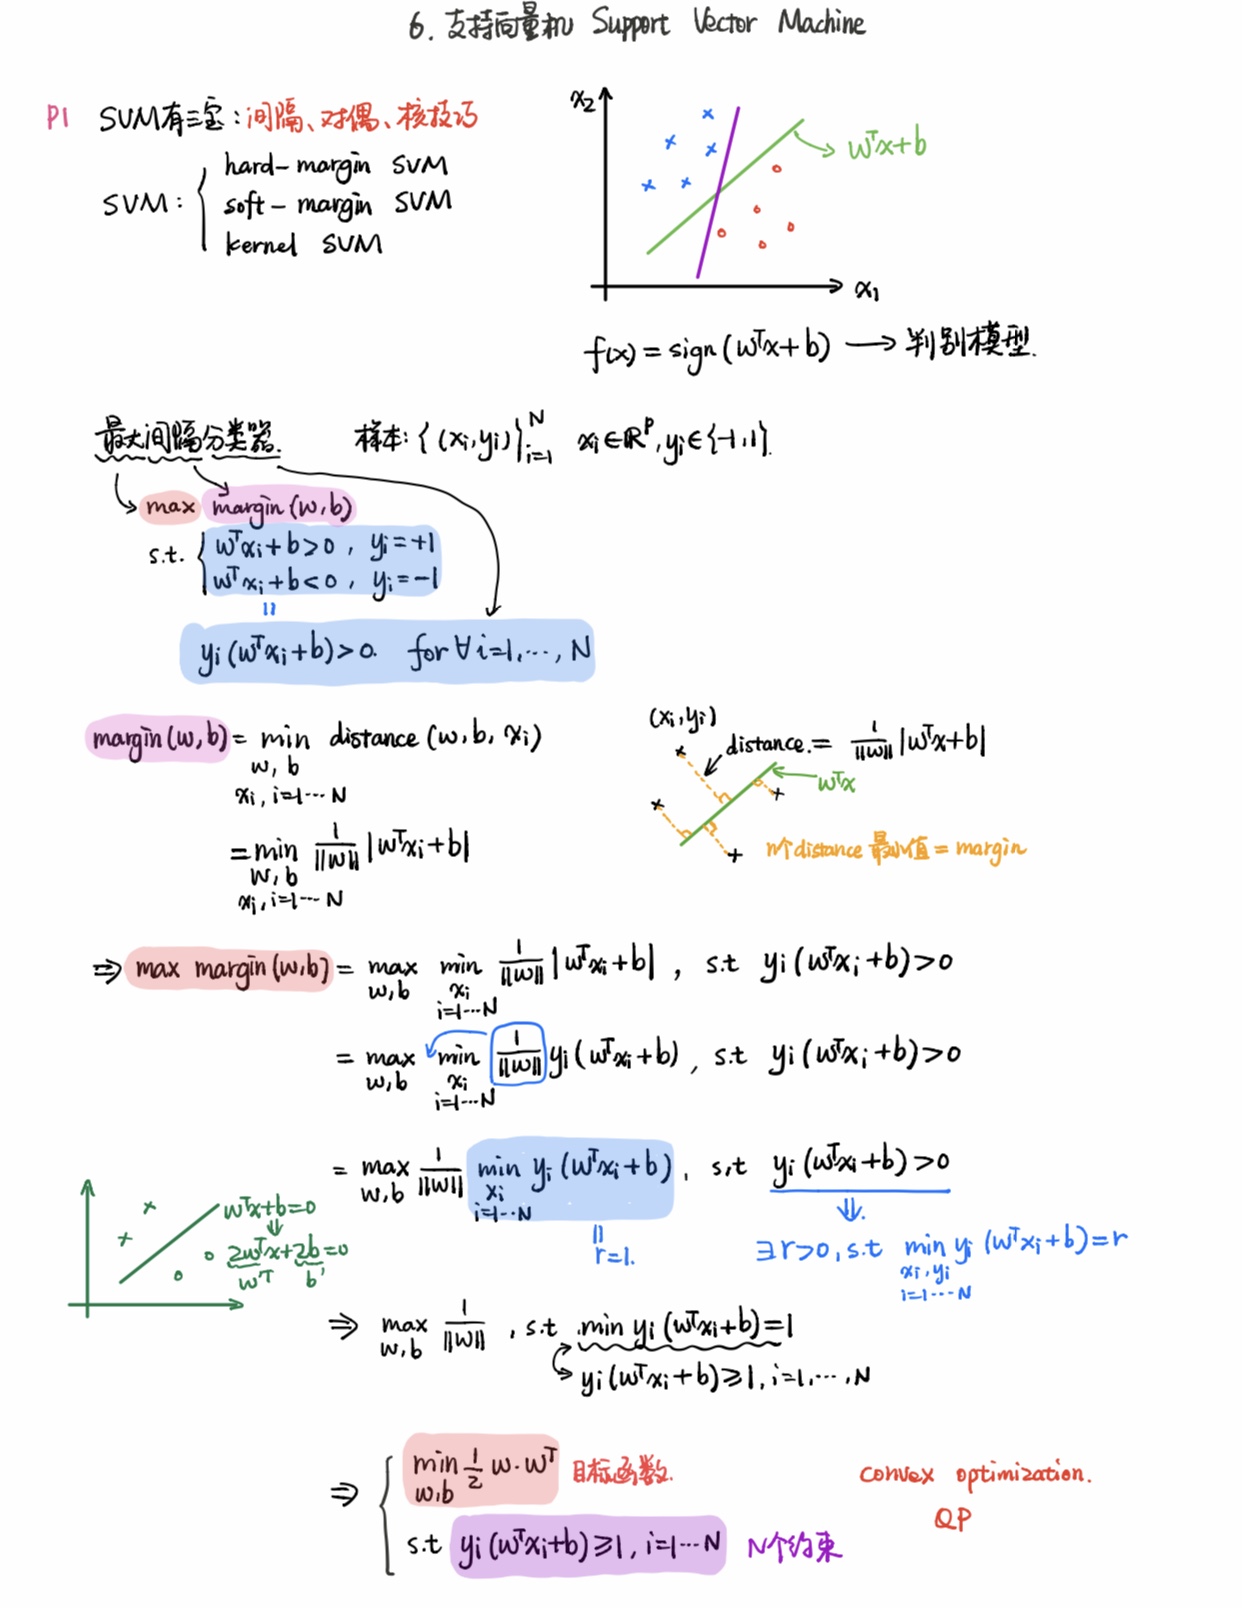 6. 支持向量机 Support Vector Machine
P1 SVM有三宝：间隔、对偶、核技巧
SVM: { hard-margin SVM
soft-margin SVM
kernel SVM
x₂
wᵀx+b
x₁
f(x) = sign(wᵀx+b) → 判别模型.
最大间隔分类器. 样本: {(xi,yi)}ᵢ₌₁ᴺ xi∈ℝᵖ, yi∈{-1,1}.
max margin(w,b)
s.t. { wᵀxi+b>0, yi=+1
wᵀxi+b<0, yi=-1
=
yi(wᵀxi+b)>0. for ∀i=1,…,N
margin(w,b) = min distance(w,b,xi)
w,b
xi, i=1…N
= min 1/||w|| |wᵀxi+b|
w,b
xi, i=1…N
(xi,yi)
distance.= 1/||w|| |wᵀx+b|
wᵀx
n个distance最小值=margin
⇒ max margin(w,b) = max min 1/||w|| |wᵀxi+b|, s.t yi(wᵀxi+b)>0
w,b xi
i=1…N
= max min 1/||w|| yi(wᵀxi+b), s.t yi(wᵀxi+b)>0
w,b xi
i=1…N
= max 1/||w|| min yi(wᵀxi+b), s.t yi(wᵀxi+b)>0
w,b xi
i=1…N
=
r=1.
⇓.
∃r>0, s.t min yi(wᵀxi+b)=r
xi,yi
i=1…N
wᵀx+b=0
⇓
2wᵀx+2b=0
wᵀ b'
⇒ max 1/||w||, s.t. min yi(wᵀxi+b)=1
w,b
yi(wᵀxi+b)≥1, i=1,…,N
⇒ { min 1/2 w·wᵀ 目标函数.
w,b
s.t yi(wᵀxi+b)≥1, i=1…N N个约束
convex optimization.
QP